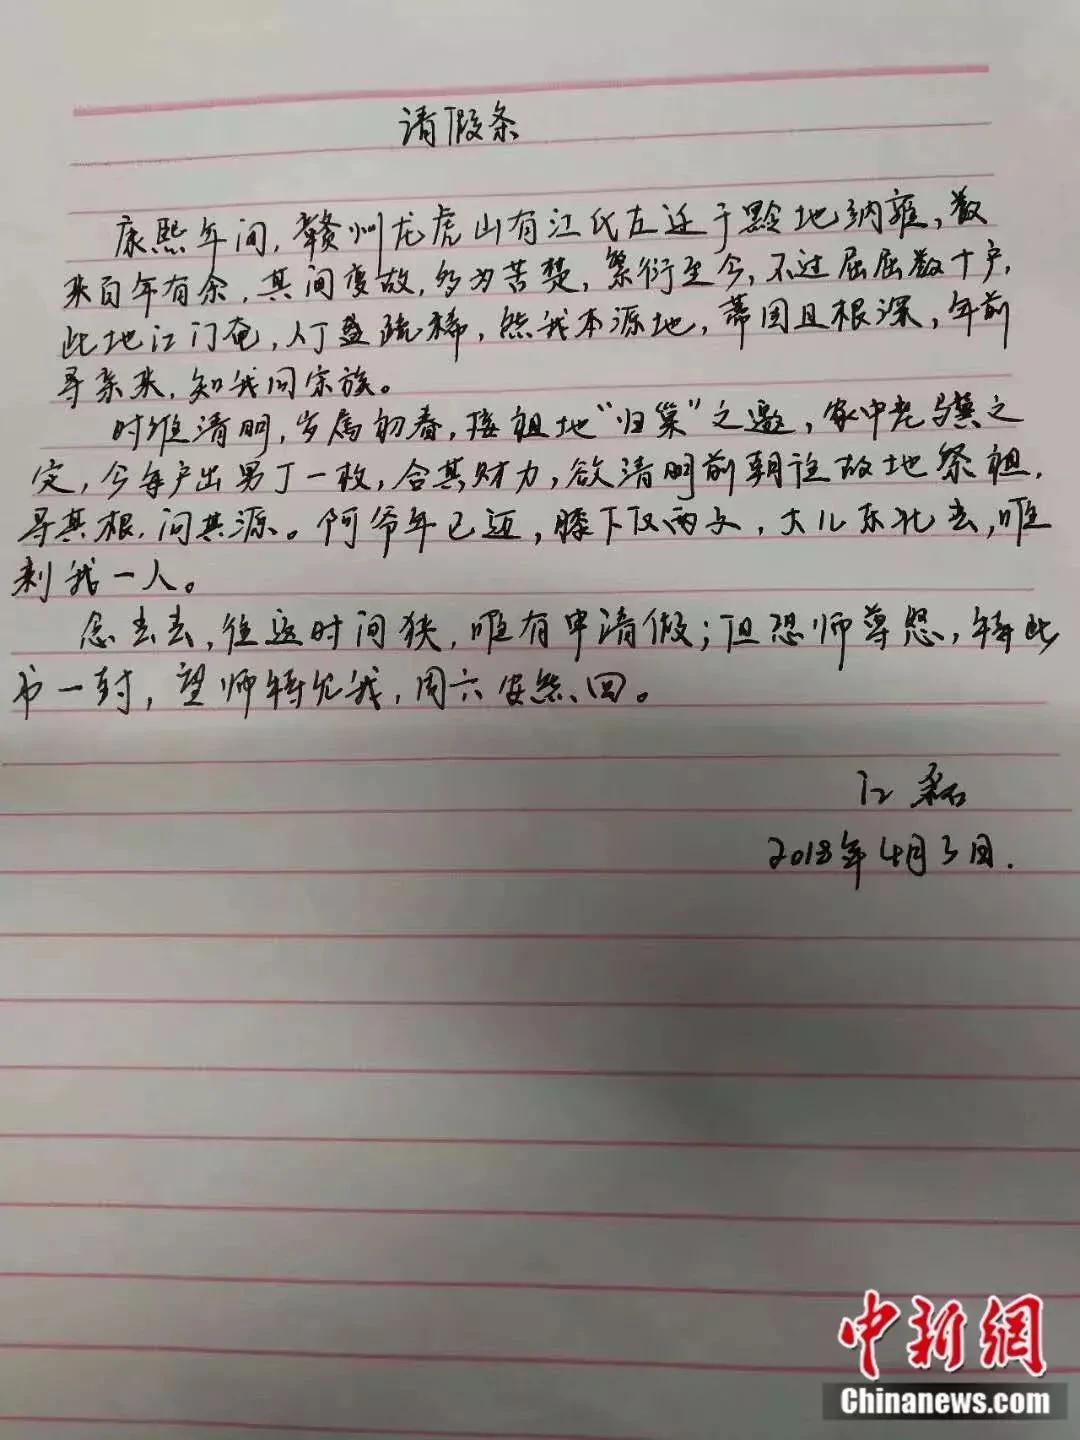 请假条
康熙年间，赣州龙虎山有江氏左迁于黔地纳雍，数
来百年有余，其间变故，多为苦楚，繁衍至今，不过屈屈数十户，
此地江门奄，人丁盖疏稀，然我本源地，蒂固且根深，年前
寻亲来，知我同宗族。
时维清明，岁属初春，接祖地“归巢”之邀，家中老
定，今每户出男丁一枚，合其财力，欲清明前朝往故地祭祖，
寻其根，问其源。阿爷年已迈，膝下仅两子，大儿东北去，唯
剩我一人。
念去去，往返时间狭，唯有申请假；但恐师尊怒，特此
书一封，望师特允我，周六安然回。
江磊
2018年4月3日.
中新网
Chinanews.com